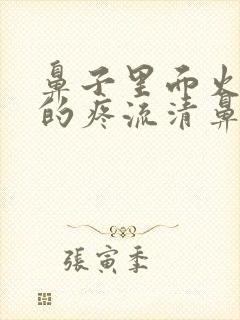 鼻子里面火
的疼流清鼻
張寅季